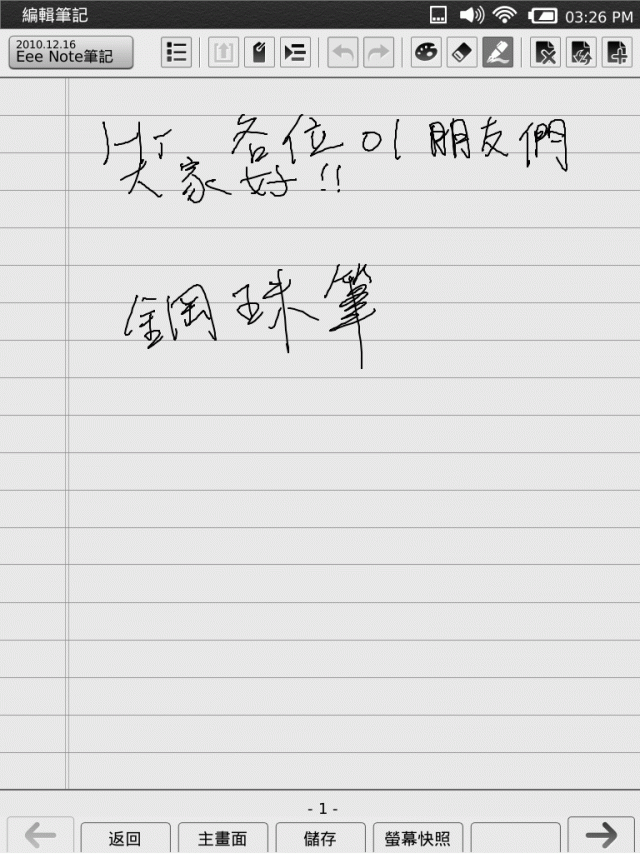 編輯筆記
03:26 PM
2010.12.16
Eee Note筆記
Hi 各位 01 朋友們
大家好!!
鋼珠筆
- 1 -
返回
主畫面
儲存
螢幕快照